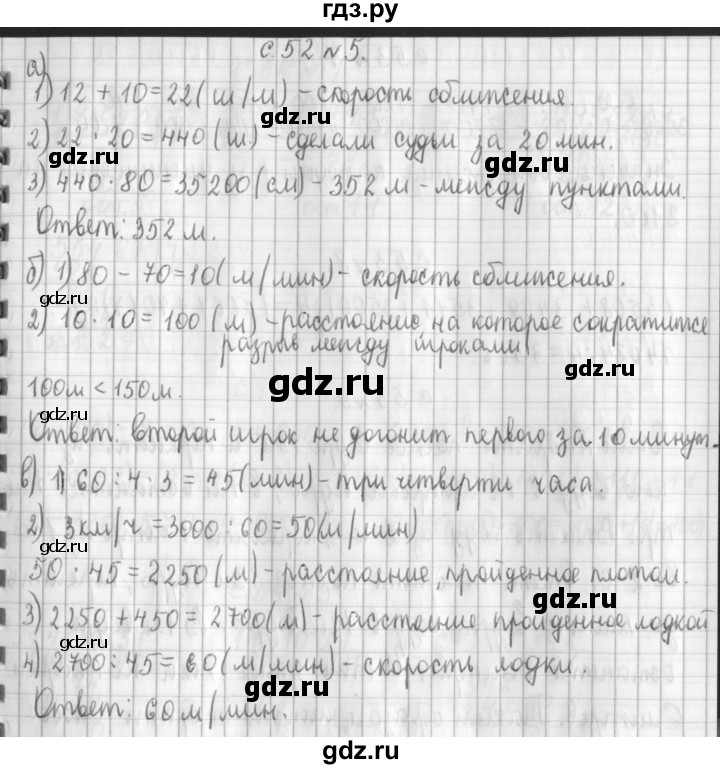 гдз.ру
с. 52 № 5.
а)
1) 12 + 10 = 22 (ш/м) - скорость сближения.
gdz.ru
gdz.ru
2) 22 · 20 = 440 (ш.) - сделали судьи за 20 мин.
gdz.ru
gdz.ru
3) 440 · 80 = 35200 (см) - 352 м - между пунктами.
Ответ: 352 м.
б) 1) 80 - 70 = 10 (м/мин) - скорость сближения.
gdz.ru
2) 10 · 10 = 100 (м) - расстояние на которое сократится
gdz.ru
разрыв между игроками
gdz.ru
gdz.ru
100 м < 150 м.
Ответ: второй игрок не догонит первого за 10 минут.
gdz.ru
в) 1) 60 : 4 · 3 = 45 (мин) - три четверти часа.
2) 3 км/ч = 3000 : 60 = 50 (м/мин)
gdz.ru
gdz.ru
50 · 45 = 2250 (м) - расстояние, пройденное плотом.
gdz.ru
3) 2250 + 450 = 2700 (м) - расстояние пройденное лодкой
gdz.ru
4) 2700 : 45 = 60 (м/мин) - скорость лодки.
gdz.ru
gdz.ru
Ответ: 60 м/мин.
gdz.ru